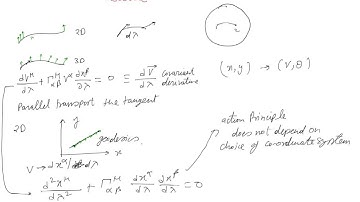 2D
dλ
3D
dV^μ/dλ + Γ^μ_αβ V^α dx^β/dλ = 0 ≡ dV/dλ covariant derivative
(x, y) → (r, θ)
Parallel transport the tangent
2D
y
geodesics.
x
V → dx^α/dλ
action Principle
does not depend on
choice of coordinate system
d²x^μ/dλ² + Γ^μ_αβ dx^α/dλ dx^β/dλ = 0